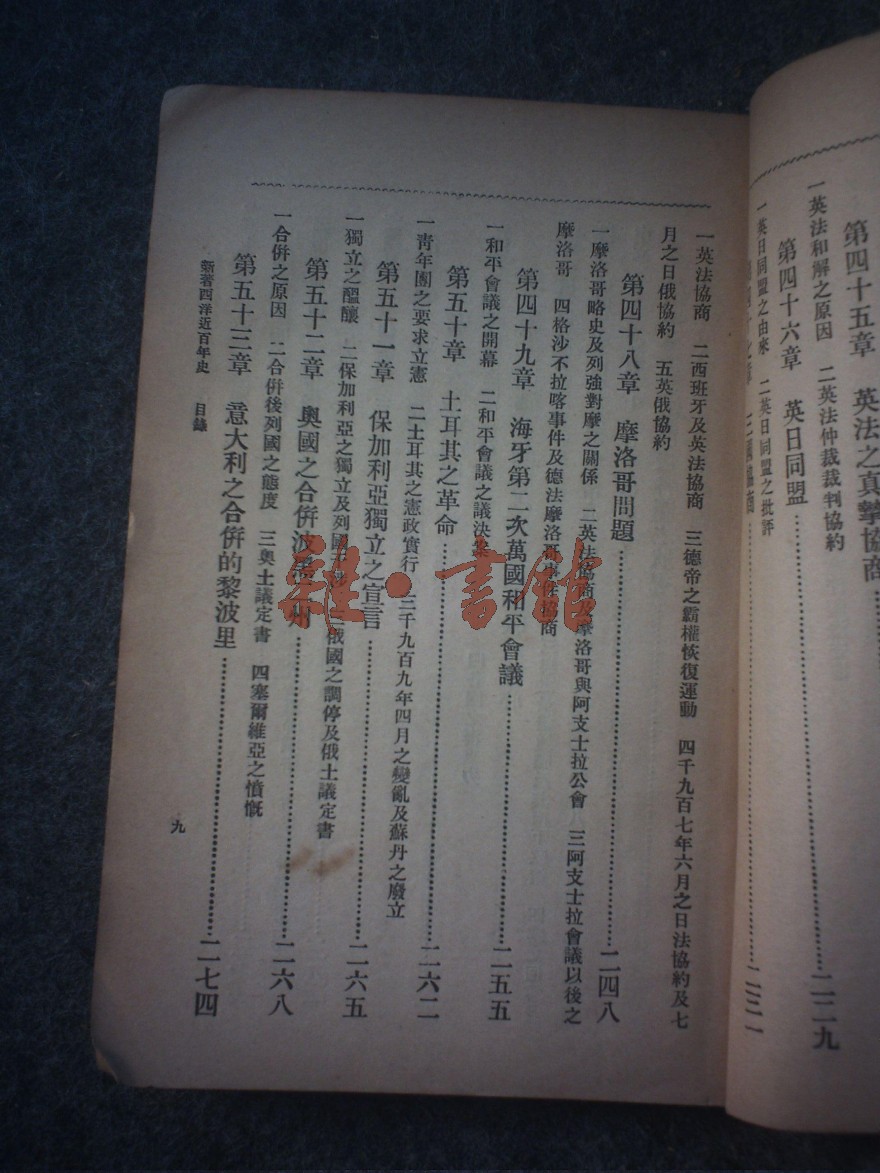 第四十五章　英法之真摯協商
一英法和解之原因　二英法仲裁裁判協約
第四十六章　英日同盟……二二九
一英日同盟之由來　二英日同盟之批評
三國協商……二三一
一英法協商　二西班牙及英法協商　三德帝之霸權恢復運動　四千九百七年六月之日法協約及七
月之日俄協約　五英俄協約
第四十八章　摩洛哥問題……二四八
一摩洛哥略史及列強對摩之關係　二英法協商及摩洛哥與阿支士拉公會　三阿支士拉會議以後之
摩洛哥　四格沙不拉喀事件及德法摩洛哥事件協商
第四十九章　海牙第二次萬國和平會議……二五五
一和平會議之開幕　二和平會議之議決案
第五十章　土耳其之革命……二六二
一靑年團之要求立憲　二土耳其之憲政實行　三千九百九年四月之變亂及蘇丹之廢立
第五十一章　保加利亞獨立之宣言……二六五
一獨立之醞釀　二保加利亞之獨立及列國　俄國之調停及俄土議定書
第五十二章　奧國之合併波黑二州……二六八
一合併之原因　二合併後列國之態度　三奧土議定書　四塞爾維亞之憤慨
第五十三章　意大利之合併的黎波里……二七四
新著西洋近百年史　目錄
九
雜·書館